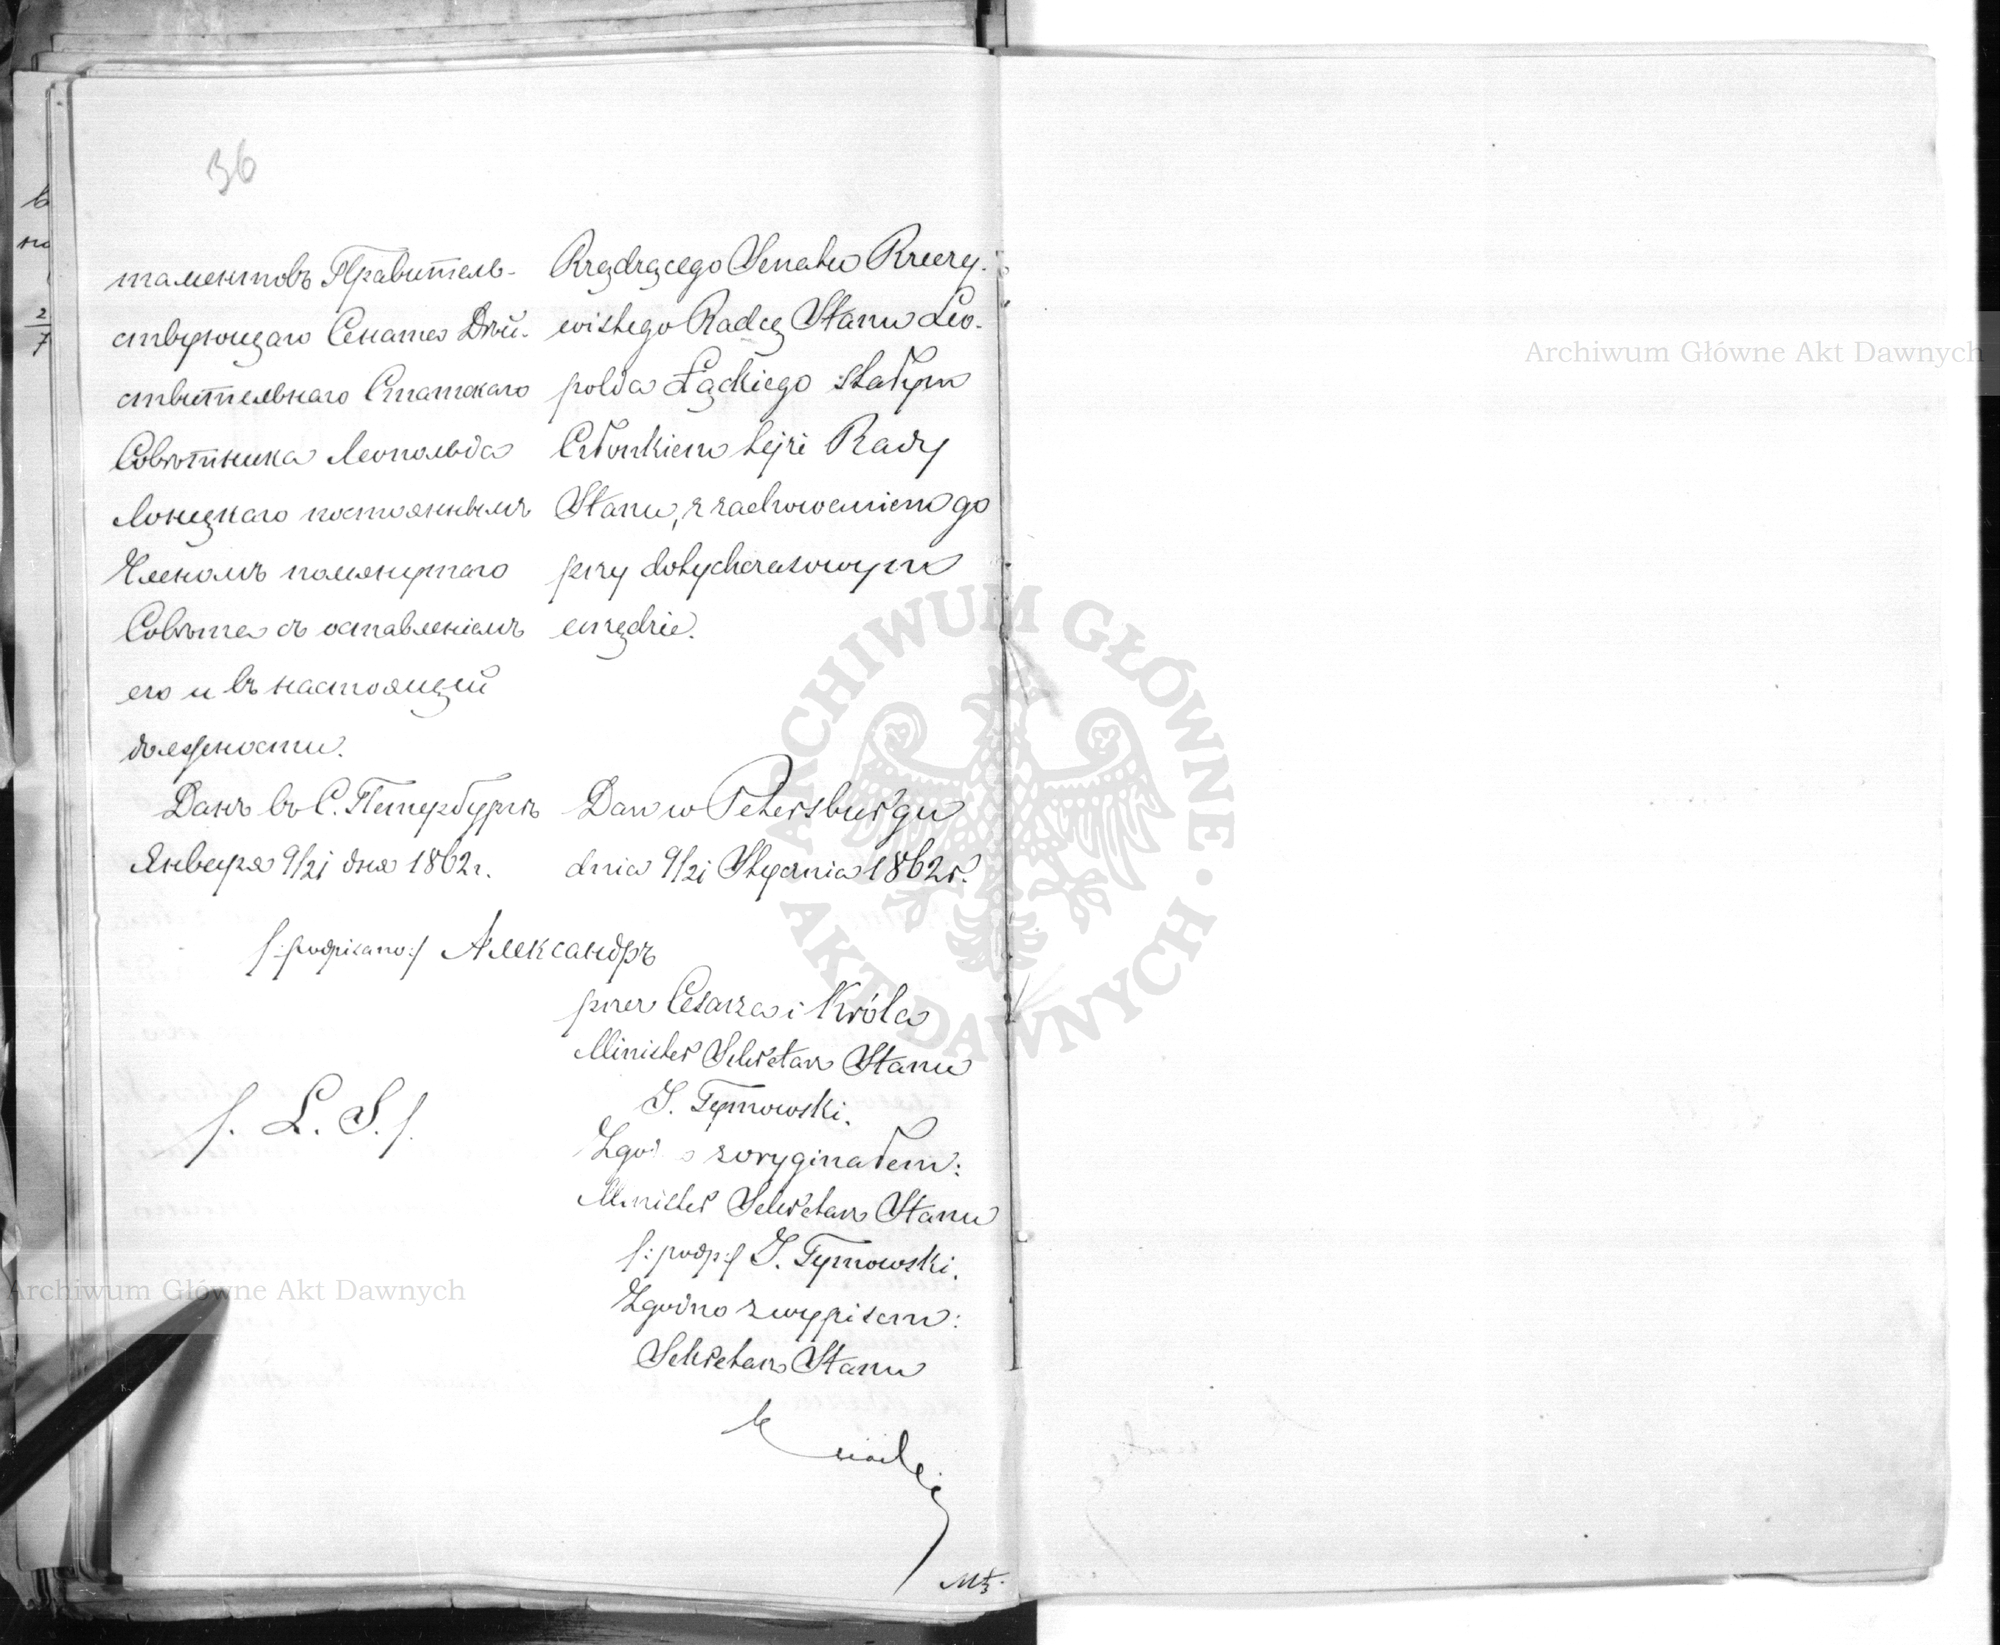 36
таментовъ Правитель-
ствующаго Сената Дѣй-
ствительнаго Статскаго
Совѣтника Леопольда
Лонцкаго постояннымъ
Членомъ помянутаго
Совѣта съ оставленіемъ
его и въ настоящей
должности.
Данъ въ С. Петербургѣ
Января 9/21 дня 1862 г.
Rządzącego Senatu Rzeczy-
wistego Radcę Stanu Leo-
polda Łąckiego stałym
Członkiem tejże Rady
Stanu, z zachowaniem go
przy dotychczasowym
urzędzie.
Dan w Petersburgu
dnia 9/21 Stycznia 1862 r.
/:podpisano:/ Александръ
przez Cesarza i Króla
Minister Sekretarz Stanu
J. Tymowski.
/. L. S. /.
Zgodno z oryginałem:
Minister Sekretarz Stanu
/:podp:/ J. Tymowski.
Zgodno z wypisem:
Sekretarz Stanu
ARCHIWUM GŁÓWNE AKT DAWNYCH
Archiwum Główne Akt Dawnych
Archiwum Główne Akt Dawnych